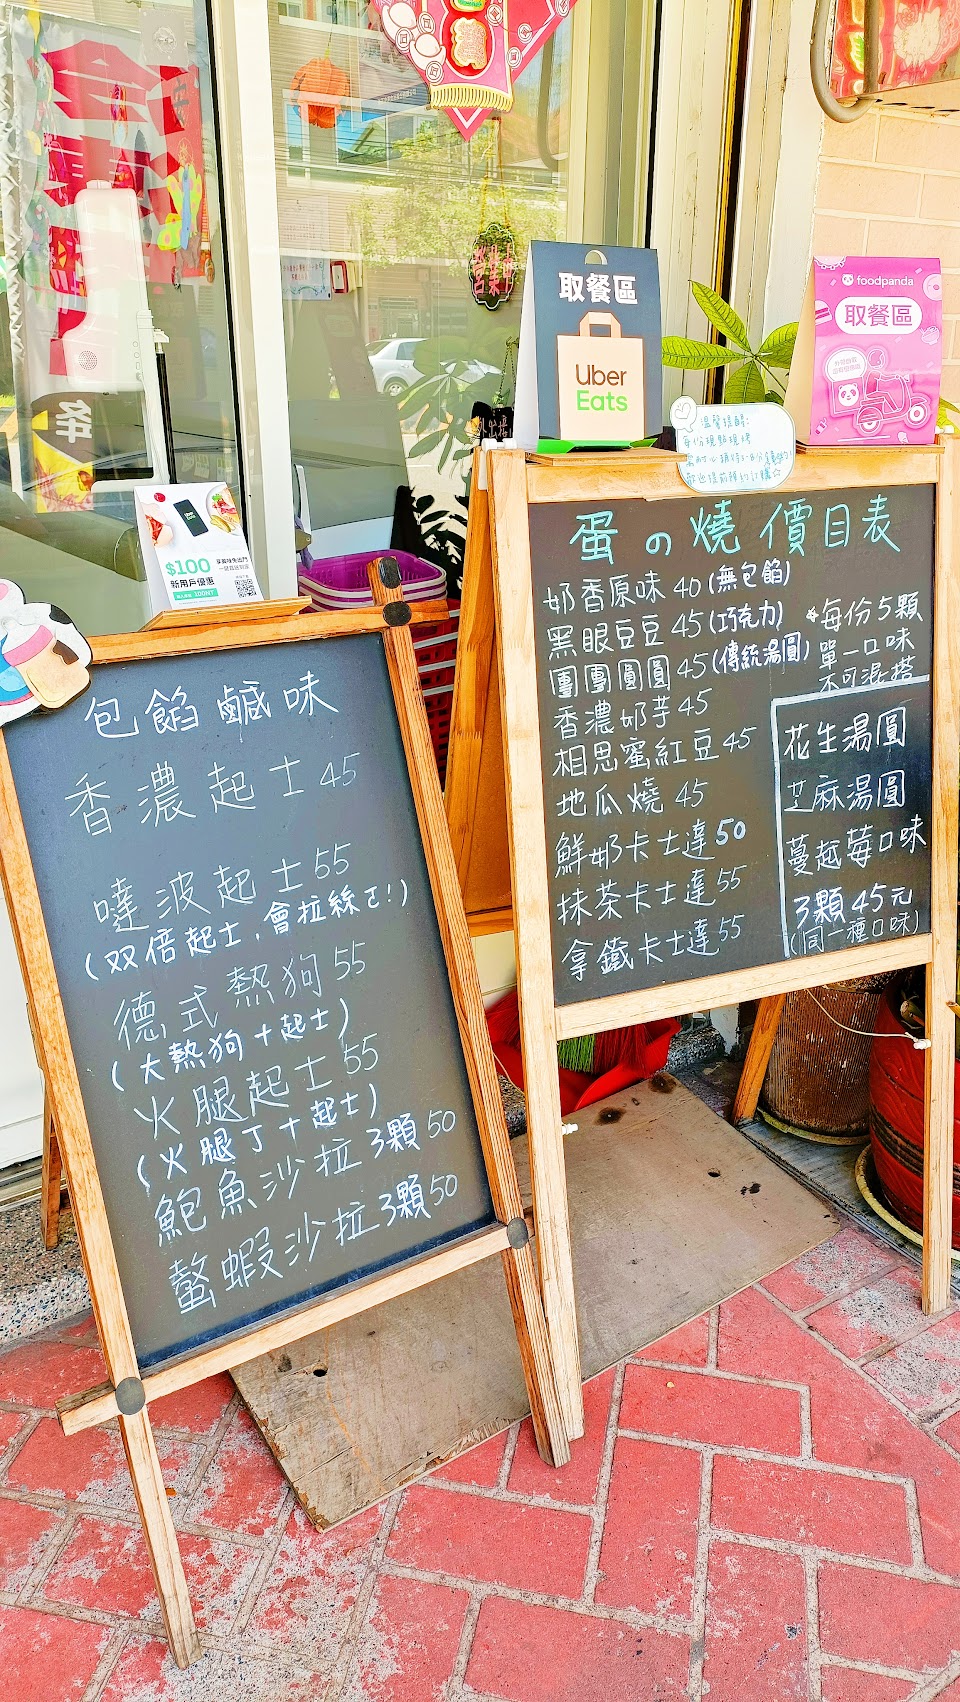 取餐區
Uber
Eats
foodpanda
取餐區
溫馨提醒:
每份現點現烤
蛋の燒 價目表
奶香原味 40 (無包餡)
黑眼豆豆 45 (巧克力)
團團圓圓 45 (傳統湯圓)
香濃奶芋 45
相思蜜紅豆 45
地瓜燒 45
鮮奶卡士達 50
抹茶卡士達 55
拿鐵卡士達 55
*每份5顆
單一口味
不可混搭
花生湯圓
芝麻湯圓
蔓越莓口味
3顆 45元
(同一種口味)
Uber
Eats
$100
新用戶優惠
包餡鹹味
香濃起士 45
噠波起士 55
(双倍起士,會拉絲ㄛ!)
德式熱狗 55
(大熱狗+起士)
火腿起士 55
(火腿丁+起士)
鮑魚沙拉 3顆 50
螯蝦沙拉 3顆 50